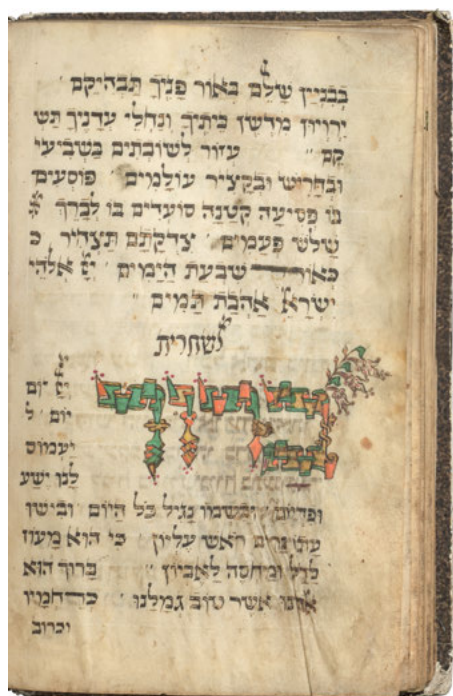 בבניין שלם באור פניך תבהיקם
ירויון מדשן ביתיך ונחלי עדניך תש
קם עזור לשובתים בשביעי
ובחריש ובקציר עולמים פוסעים
בו פסיעה קטנה סועדים בו לברך
שלש פעמים צדקתם תצהיר כ
כאור שבעת הימים יי אלהי
ישרא אהבת תמים
לשחרית
ברוך
יי יום
יום ל
יעמוס
לנו ישע
ופדיום ובשמו נגיל כל היום ובישו
עתו נרים ראש עליון כי הוא מעוז
לדל ומחסה לאביון ברוך הוא
אשר טוב גמלנו כרחמיו
וכרוב